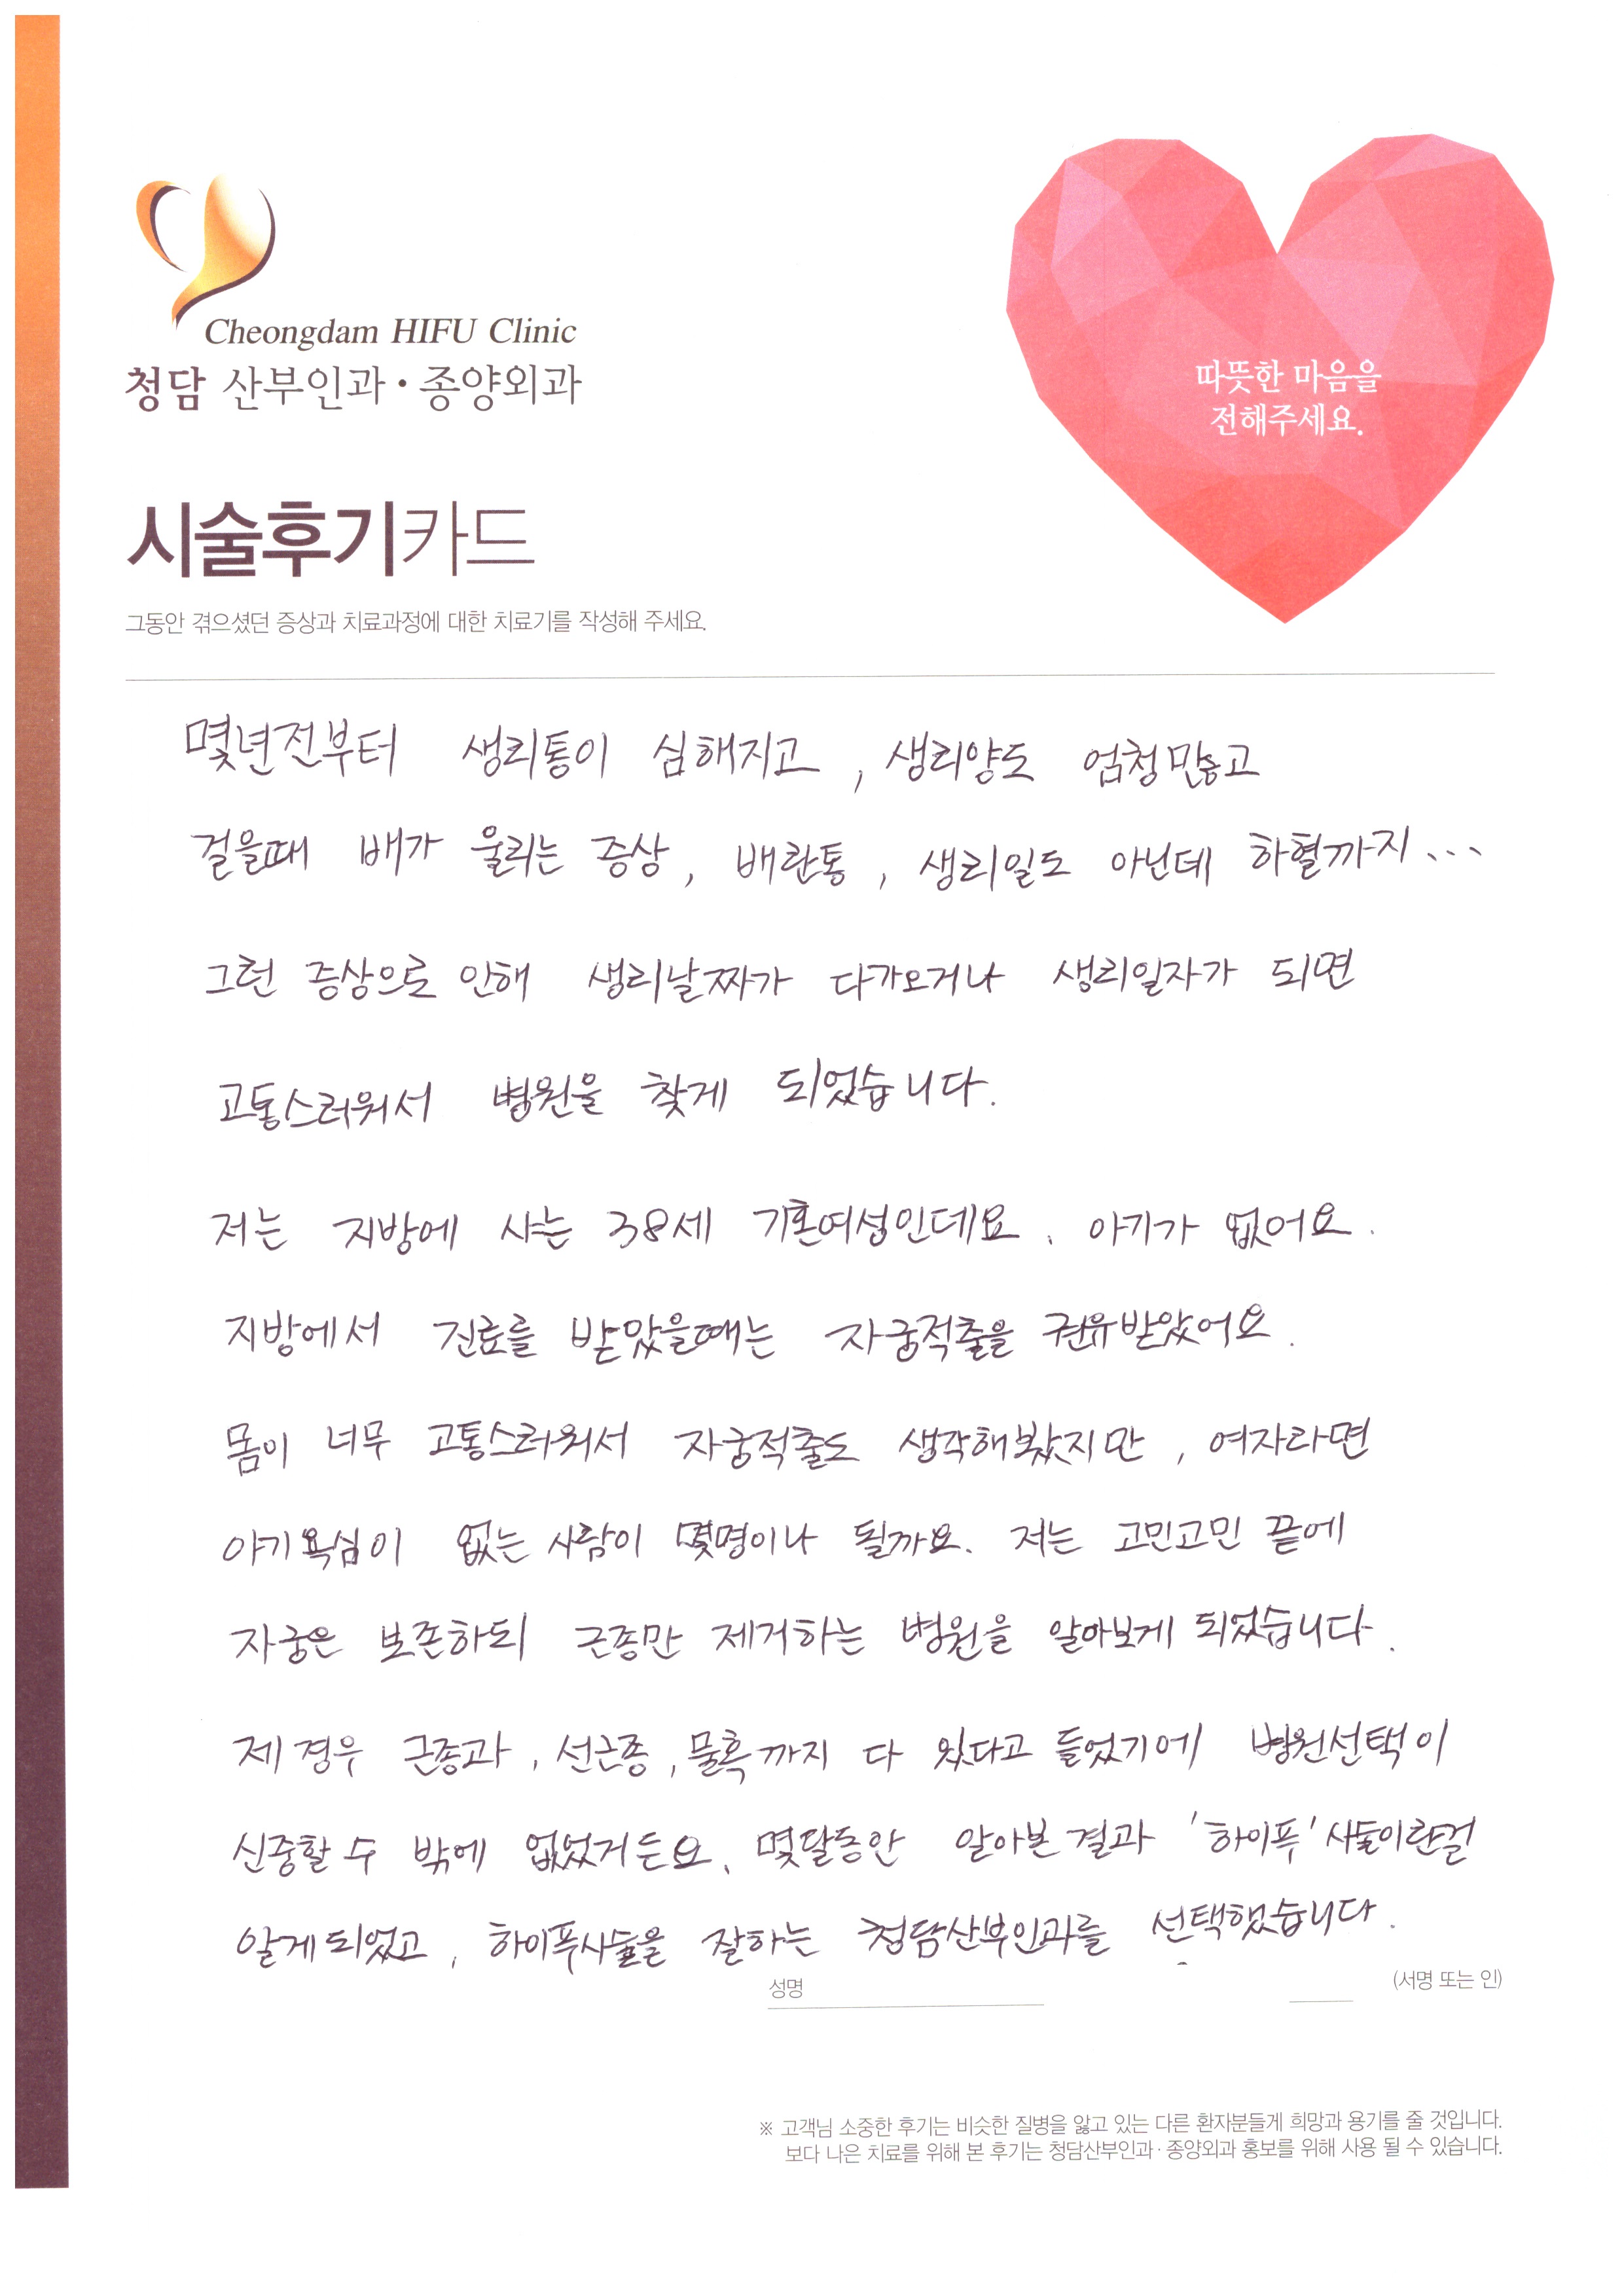 Cheongdam HIFU Clinic
청담 산부인과·종양외과
따뜻한 마음을
전해주세요.
시술후기카드
그동안 겪으셨던 증상과 치료과정에 대한 치료기를 작성해 주세요.
몇년전부터 생리통이 심해지고, 생리양도 엄청많고
걸을때 배가 울리는 증상, 배란통, 생리일도 아닌데 하혈까지...
그런 증상으로 인해 생리날짜가 다가오거나 생리일자가 되면
고통스러워서 병원을 찾게 되었습니다.
저는 지방에 사는 38세 기혼여성인데요. 아기가 없어요.
지방에서 진료를 받았을때는 자궁적출을 권유받았어요.
몸이 너무 고통스러워서 자궁적출도 생각해봤지만, 여자라면
아기욕심이 없는 사람이 몇명이나 될까요. 저는 고민고민 끝에
자궁은 보존하되 근종만 제거하는 병원을 알아보게 되었습니다.
제 경우 근종과, 선근종, 물혹까지 다 있다고 들었기에 병원선택이
신중할 수 밖에 없었거든요. 몇달동안 알아본 결과 '하이푸' 시술이란걸
알게되었고, 하이푸시술을 잘하는 청담산부인과를 선택했습니다.
성명 (서명 또는 인)
※ 고객님 소중한 후기는 비슷한 질병을 앓고 있는 다른 환자분들게 희망과 용기를 줄 것입니다.
보다 나은 치료를 위해 본 후기는 청담산부인과·종양외과 홍보를 위해 사용 될 수 있습니다.